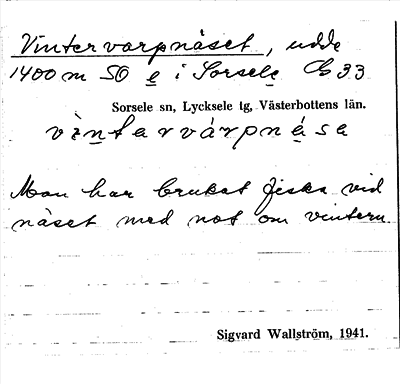 Vintervarpnäset, udde
1400 m SO e i Sorsele Cb 33
Sorsele sn, Lycksele tg, Västerbottens län.
vìntarvárpnésa
Man har brukat fiska vid
näset med not om vintern.
Sigvard Wallström, 1941.